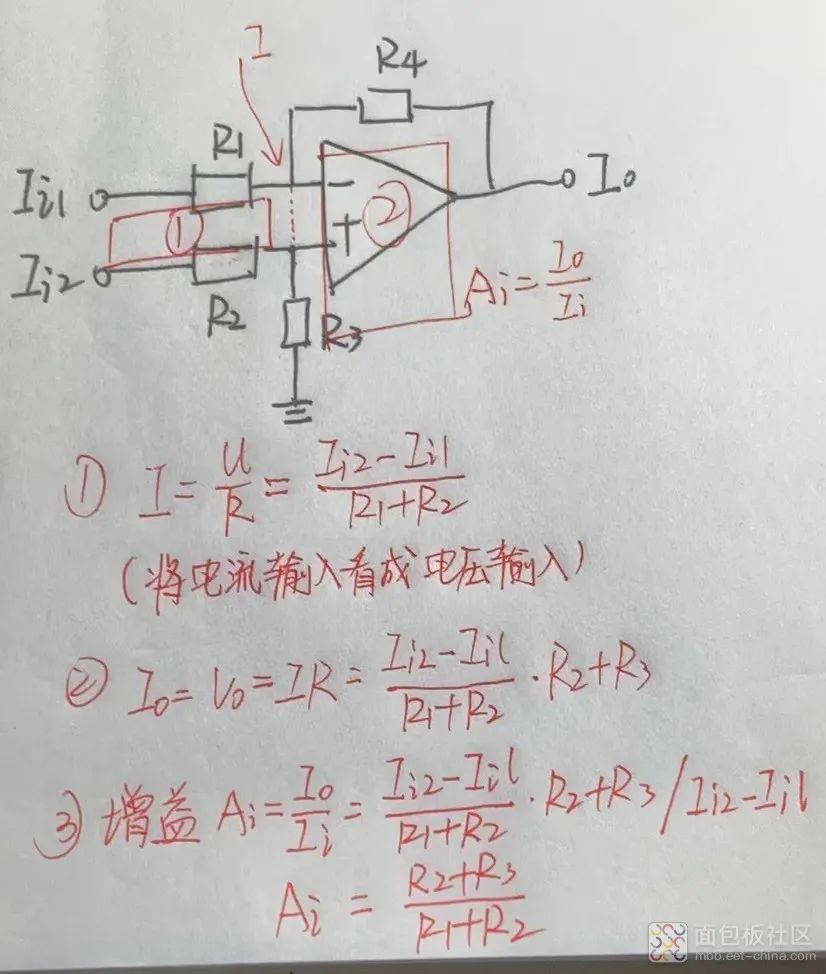 I
R4
R1
Ii1
①
②
Io
Ii2
R2
R3
Ai=Io/Ii
① I=U/R=(Ii2-Ii1)/(R1+R2)
(将电流输入看成电压输入)
② Io=Vo=IR=(Ii2-Ii1)/(R1+R2)·R2+R3
③ 增益 Ai=Io/Ii=(Ii2-Ii1)/(R1+R2)·R2+R3/Ii2-Ii1
Ai=(R2+R3)/(R1+R2)
面包板社区
mbb.eet-china.com